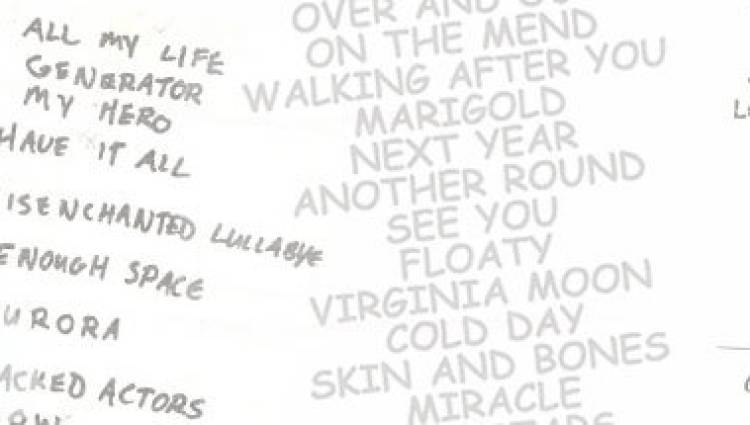 ALL MY LIFE
GENERATOR
MY HERO
HAVE IT ALL
ISENCHANTED LULLABYE
ENOUGH SPACE
URORA
ACKED ACTORS
OVER AND
ON THE MEND
WALKING AFTER YOU
MARIGOLD
NEXT YEAR
ANOTHER ROUND
SEE YOU
FLOATY
VIRGINIA MOON
COLD DAY
SKIN AND BONES
MIRACLE